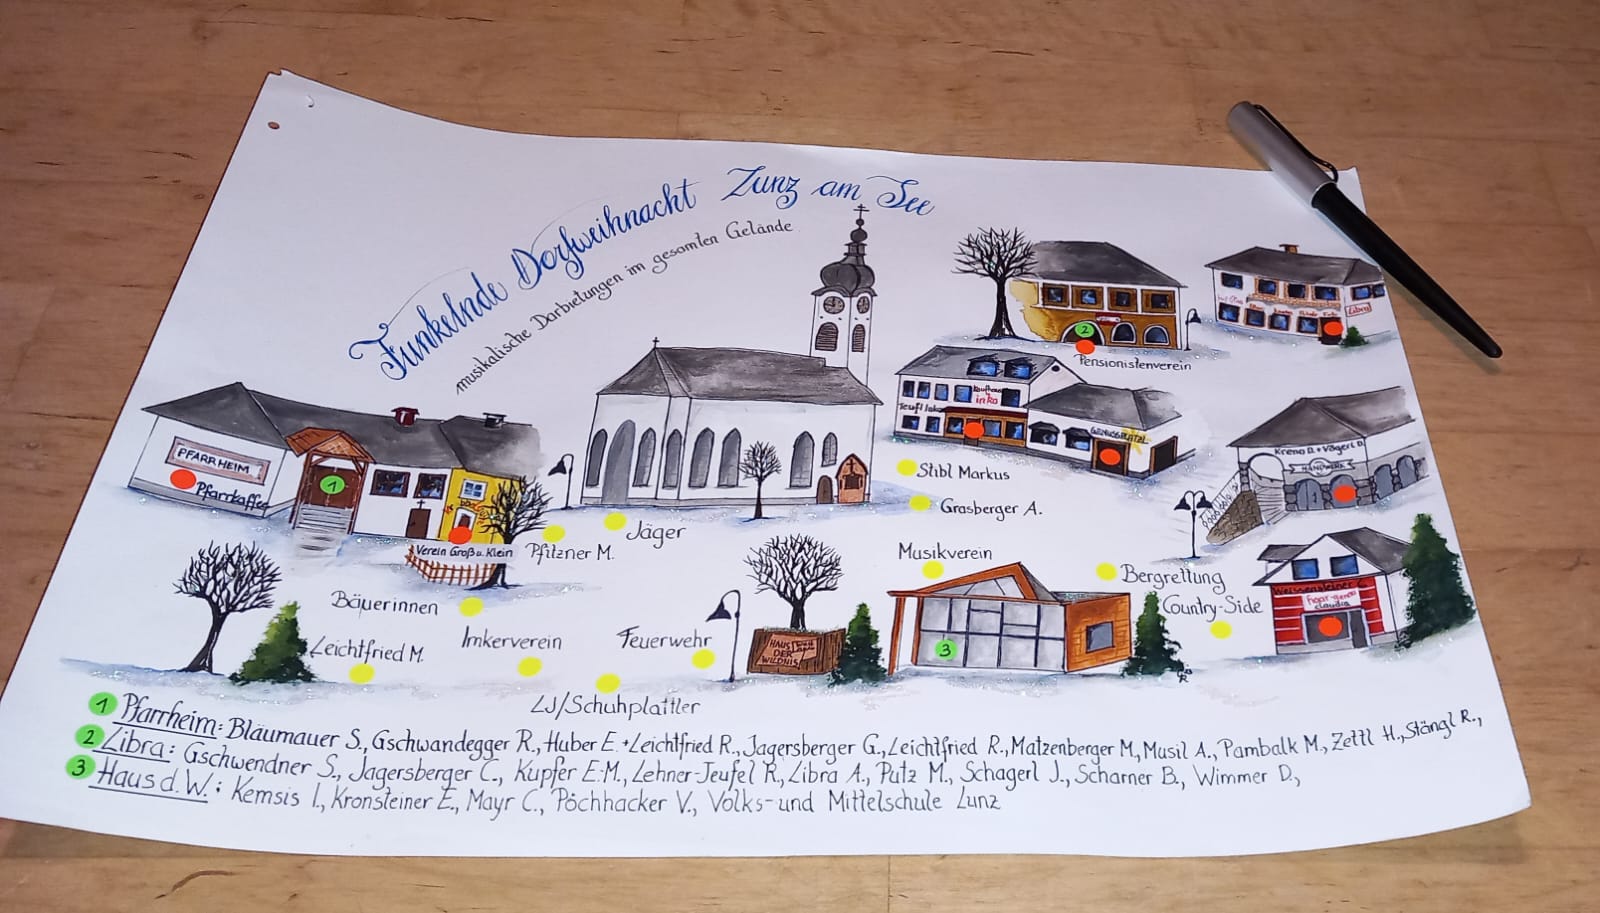 Funkelnde Dorfweihnacht Lunz am See
musikalische Darbietungen im gesamten Gelände
Pensionistenverein
Libra
Kaufhaus
inka
Teufl
GENUSSPLATZL
Kreno D. + Vögerl D.
HANDWERK
PFARRHEIM
Pfarrkaffee
1
2
Verein Groß u. Klein
Pfitzner M.
Jäger
Stibl Markus
Grasberger A.
Musikverein
Bergrettung
Country-Side
Weissensteiner C.
claudia
Bäuerinnen
Leichtfried M.
Imkerverein
Feuerwehr
HAUS DER WILDNIS
3
LJ/Schuhplattler
1 Pfarrheim: Bläumauer S., Gschwandegger R., Huber E. + Leichtfried R., Jagersberger G., Leichtfried R., Matzenberger M., Musil A., Pambalk M., Zettl H., Stängl R.,
2 Libra: Gschwendner S., Jagersberger C., Kupfer E.M., Lehner-Teufel R., Libra A., Putz M., Schagerl J., Scharner B., Wimmer D.,
3 Haus d. W.: Kemsis I., Kronsteiner E., Mayr C., Pöchhacker V., Volks- und Mittelschule Lunz